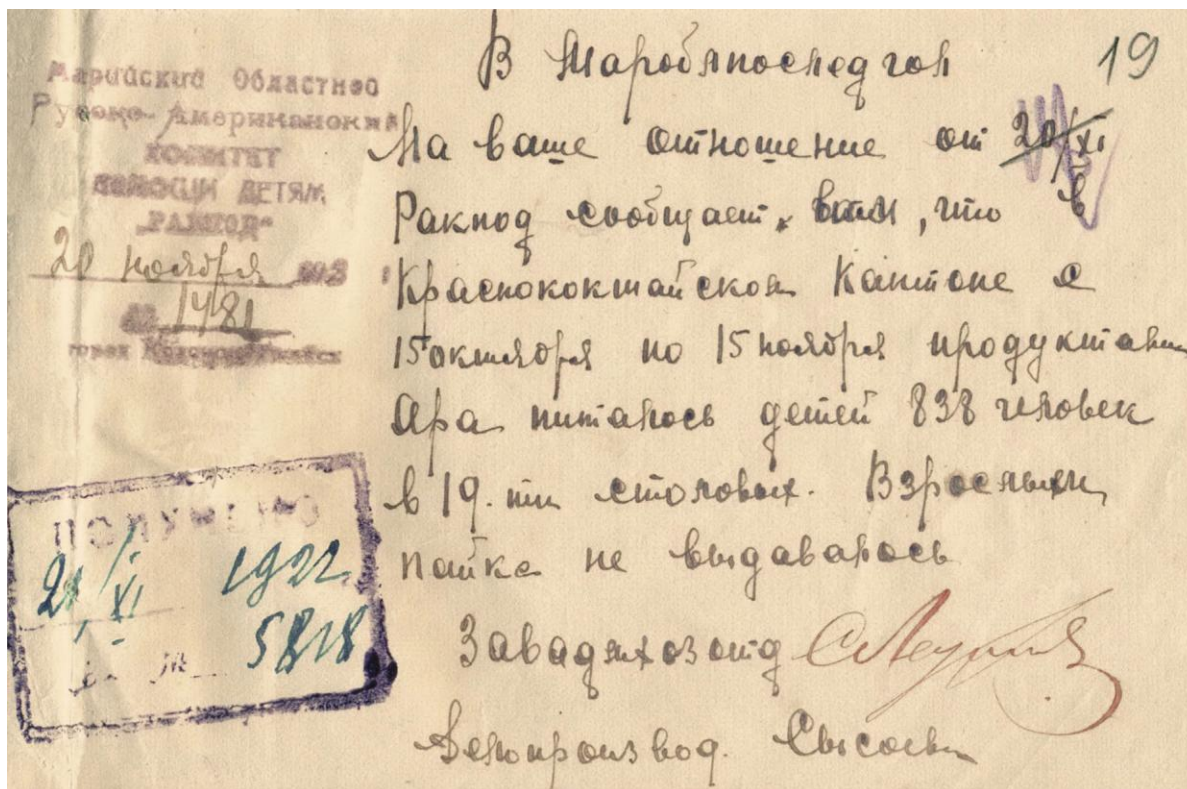 Марийский Областной
Русско-Американский
КОМИТЕТ
ПОМОЩИ ДЕТЯМ
„РАКПОД“
20 ноября 192
№ 1481
город Краснококшайск
19
В Маробл
На ваше отношение от 20/XI
Ракпод сообщает, что в
Краснококшайском Кантоне с
15 октября по 15 ноября продуктами
Ара питалось детей 838 человек
в 19-ти столовых. Взрослым
пайка не выдавалось
Завадмхозотд
Делопроизвод. Сысоева
ПОЛУЧЕНО
21/XI 1922
№ 5818